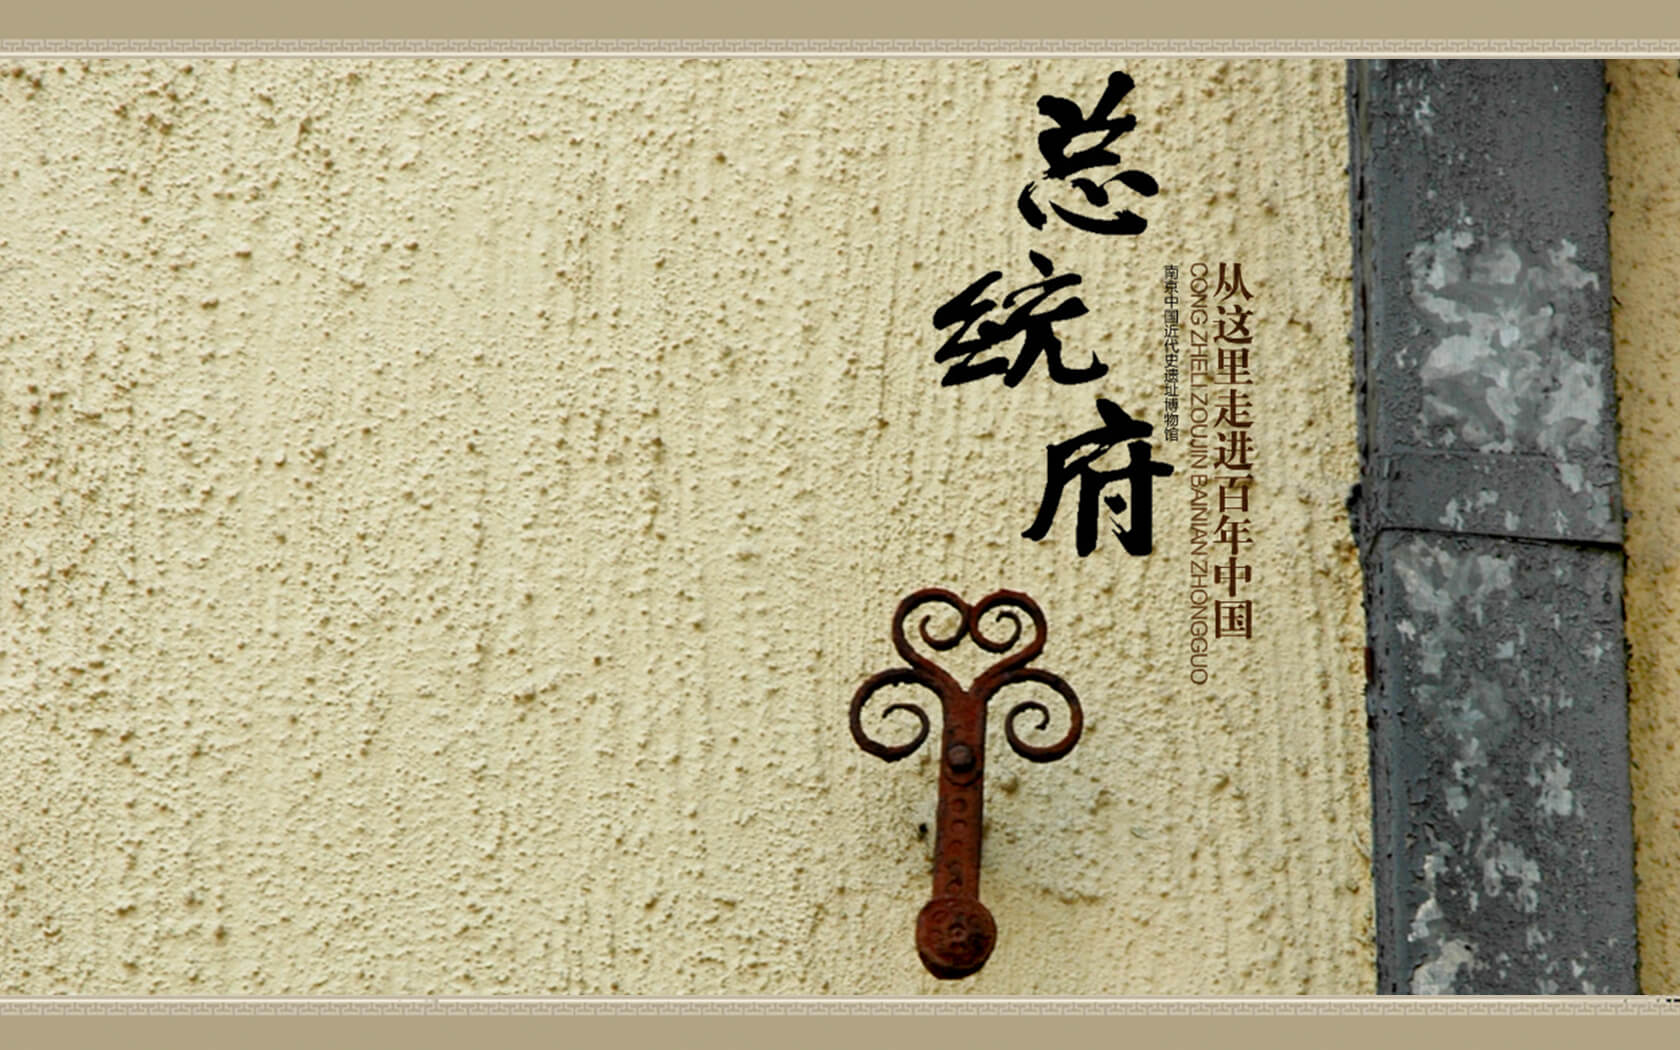 总统府
从这里走进百年中国
CONG ZHELI ZOUJIN BAINIAN ZHONGGUO
南京中国近代史遗址博物馆